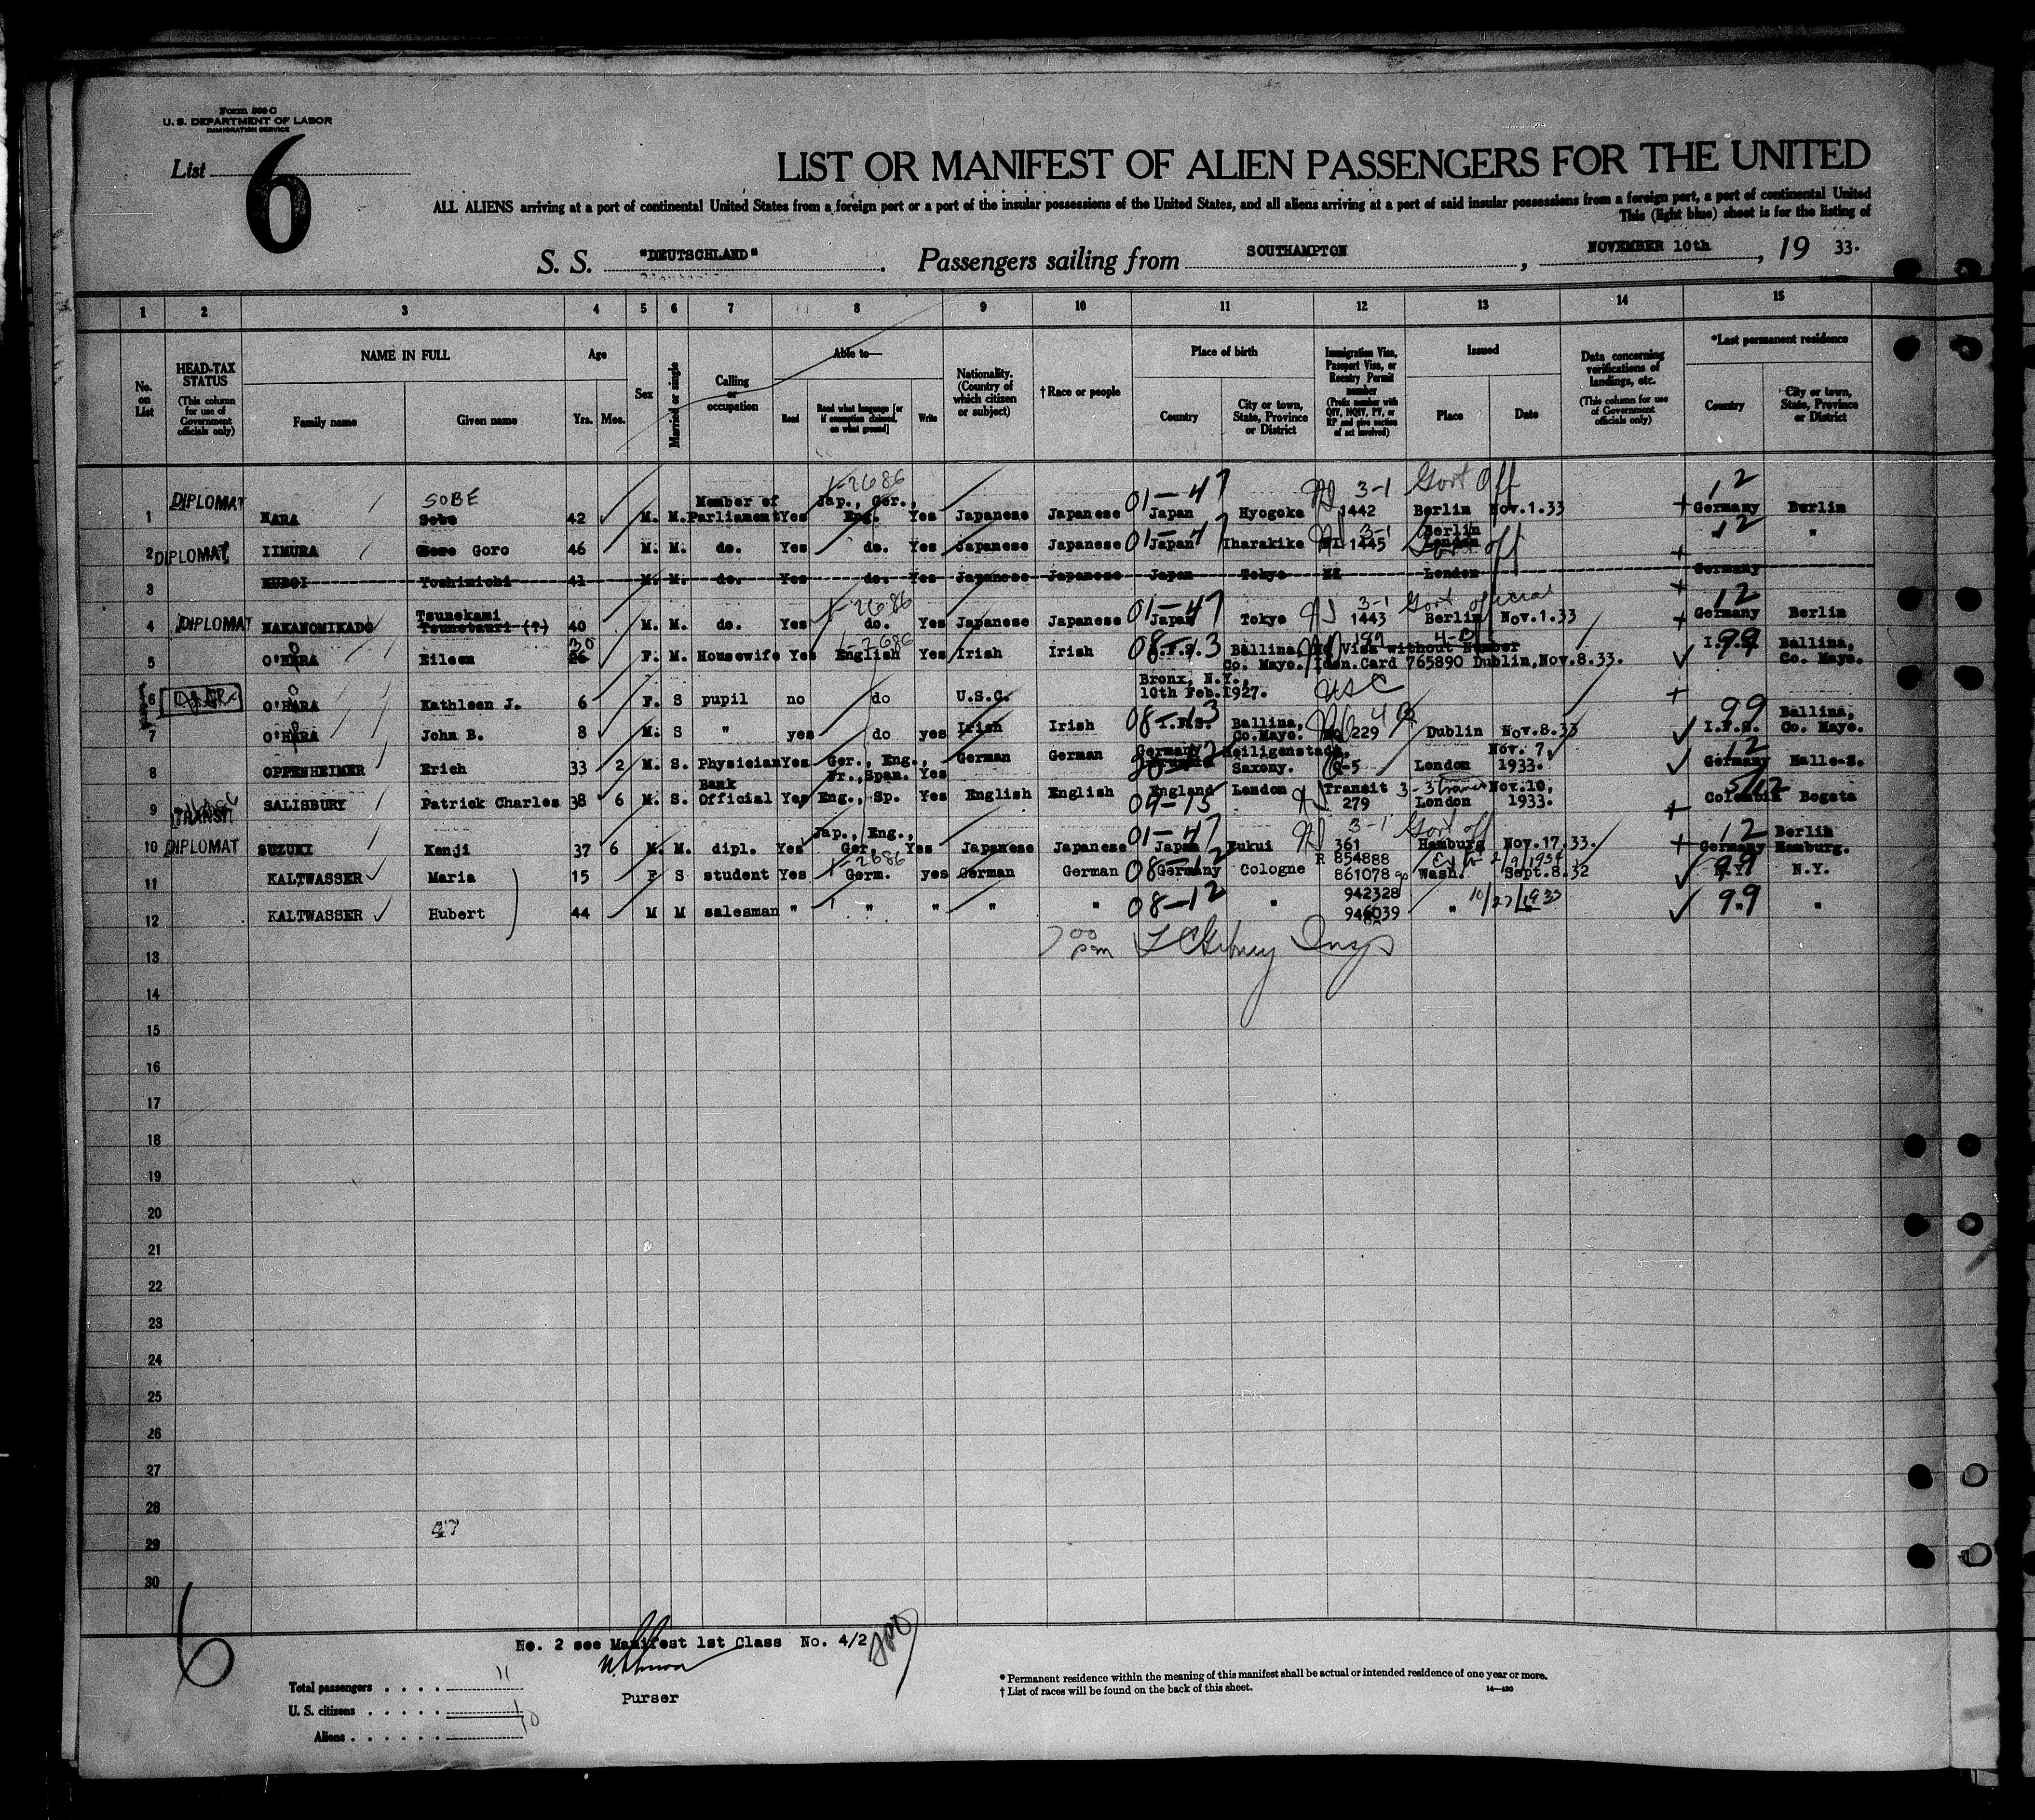 Form 500 C
U. S. DEPARTMENT OF LABOR
IMMIGRATION SERVICE
List 6
LIST OR MANIFEST OF ALIEN PASSENGERS FOR THE UNITED
ALL ALIENS arriving at a port of continental United States from a foreign port or a part of the insular possessions of the United States, and all aliens arriving at a port of said insular possessions from a foreign port, a part of continental United
This (light blue) sheet is for the listing of
S. S. "DEUTSCHLAND". Passengers sailing from SOUTHAMPTON, NOVEMBER 10th, 19 33.
1 2 3 4 5 6 7 8 9 10 11 12 13 14 15
No. on List
HEAD-TAX STATUS (This column for use of Government officials only)
NAME IN FULL
Family name
Given name
Age
Yrs. Mos.
Sex
Married or single
Calling or occupation
Able to—
Read
Read what language [or if exemption claimed, on what ground]
Write
Nationality. (Country of which citizen or subject)
† Race or people
Place of birth
Country
City or town, State, Province or District
Immigration Visa, Passport Visa, or Reentry Permit number
(Prefix number with QIV, NQIV, PV, or RP and give section of act involved)
Issued
Place
Date
Data concerning verifications of landings, etc.
(This column for use of Government officials only)
*Last permanent residence
Country
City or town, State, Province or District
1 DIPLOMAT HARA SOBE Sobe 42 M. M. Member of Parliament Yes Jap., Ger., Eng. 1-2686 Yes Japanese Japanese 01-47 Japan Hyogoke 3-1 1442 Govt Off Berlin Nov.1.33 + 12 Germany Berlin
2 DIPLOMAT IIMURA Goro 46 M. M. do. Yes do. Yes Japanese Japanese 01-47 Japan Iharakike 3-1 1445 Berlin London Govt off + 12 "
3 KUBOI Yoshimichi 41 M. M. do. Yes do. Yes Japanese Japanese Japan Tokyo London + Germany
4 DIPLOMAT NAKANOMIKADO Tsunekami Tsunetauri (?) 40 M. M. do. Yes 1-2686 do. Yes Japanese Japanese 01-47 Japan Tokyo 3-1 1443 Govt official Berlin Nov.1.33 + 12 Germany Berlin
5 O'HARA Eileen 30 26 F. M. Housewife Yes 1-2686 English Yes Irish Irish 08-13 I.F.S. Ballina, Co. Mayo. Visa without Number Iden.Card 765890 Dublin, Nov.8.33. 99 I.F.S. Ballina, Co. Mayo.
6 O'HARA Kathleen J. 6 F. S pupil no do U.S.C. Bronx, N.Y., 10th Feb.1927. USC +
7 O'HARA John B. 8 M. S " yes do yes Irish Irish 08-13 I.F.S. Ballina, Co.Mayo. 229 Dublin Nov.8.33 99 I.F.S. Ballina, Co. Mayo.
8 OPPENHEIMER Erich 33 2 M. S. Physician Yes Ger., Eng., Fr., Span. Yes German German Germany Heiligenstadt, Saxony. Q-5 London Nov. 7, 1933. 12 Germany Halle-S.
9 TRANSIT SALISBURY Patrick Charles 38 6 M. S. Bank Official Yes Eng., Sp. Yes English English England 04-15 London Transit 279 3-3 transit London Nov.10, 1933. + Colombia Bogota
10 DIPLOMAT SUZUKI Kenji 37 6 M. M. dipl. Yes Jap., Eng., Ger. Yes Japanese Japanese 01-47 Japan Fukui 3-1 361 Govt off Hamburg Nov.17.33. + 12 Germany Berlin Hamburg.
11 KALTWASSER Maria 15 F S student Yes 1-2686 Germ. yes German German 08-12 Germany Cologne R 854888 861078 Wash. Sept.8.32 99 N.Y. N.Y.
12 KALTWASSER Hubert 44 M M salesman " " " " " 08-12 " 942328 946039 " 10/27/1933 99 "
7 00 pm Insp
13
14
15
16
17
18
19
20
21
22
23
24
25
26
27
28
47
29
30
6
No. 2 see Manifest 1st Class No. 4/2
Purser
Total passengers . . . . 11
U. S. citizens . . . . . 1
Aliens . . . . . . 10
* Permanent residence within the meaning of this manifest shall be actual or intended residence of one year or more.
† List of races will be found on the back of this sheet.
14—430